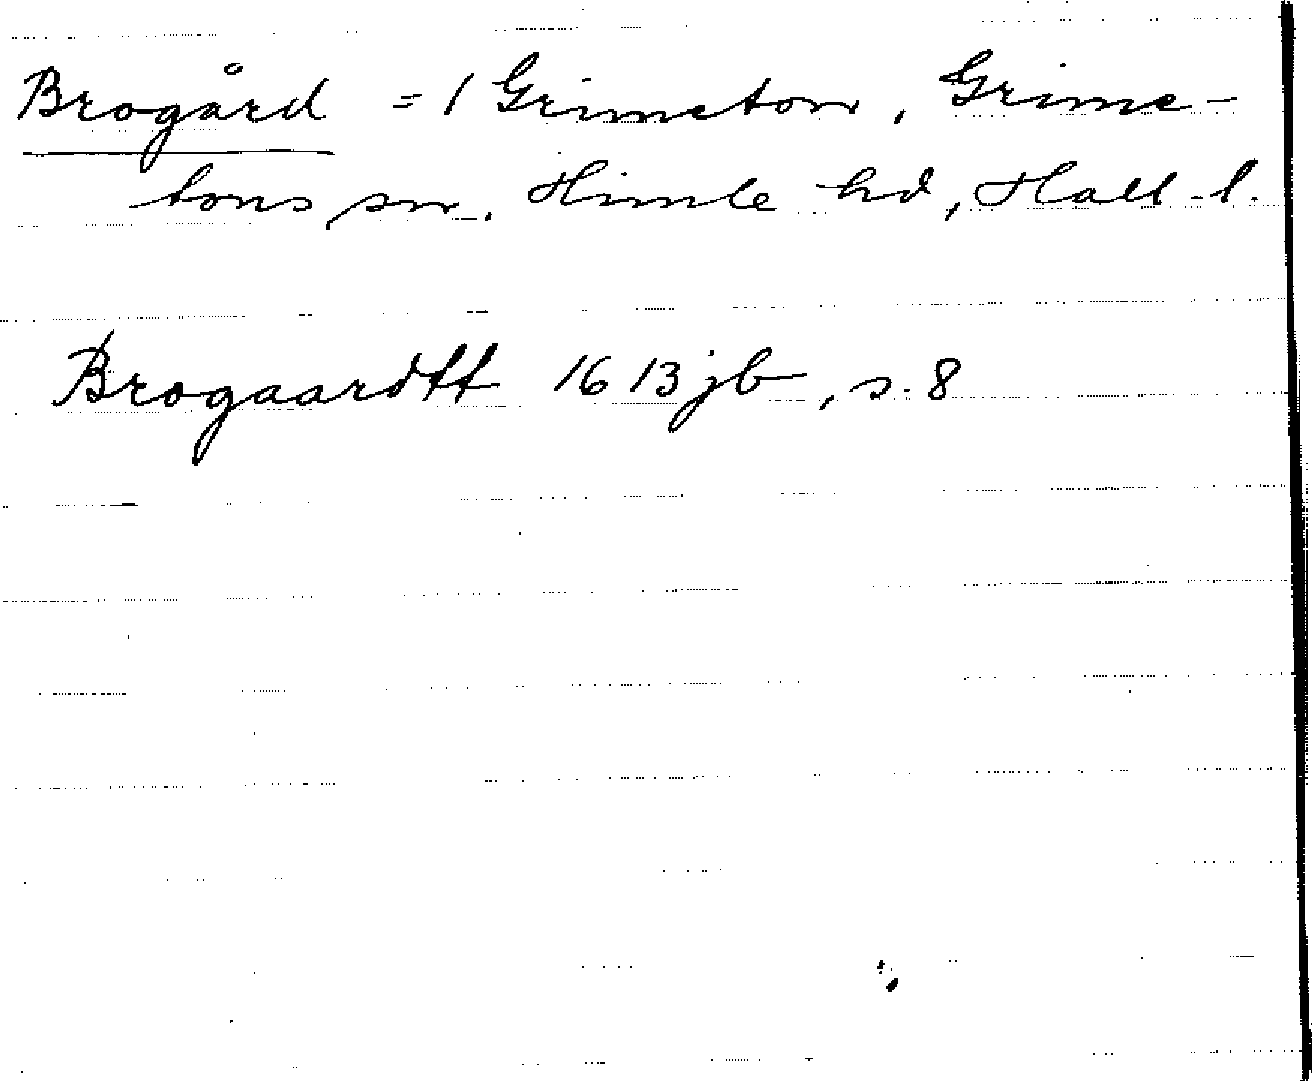 Brogård = 1 Grimeton, Grime-
tons sn. Himle hd, Hall. l.
Brogaardtt 1613 jb, s. 8